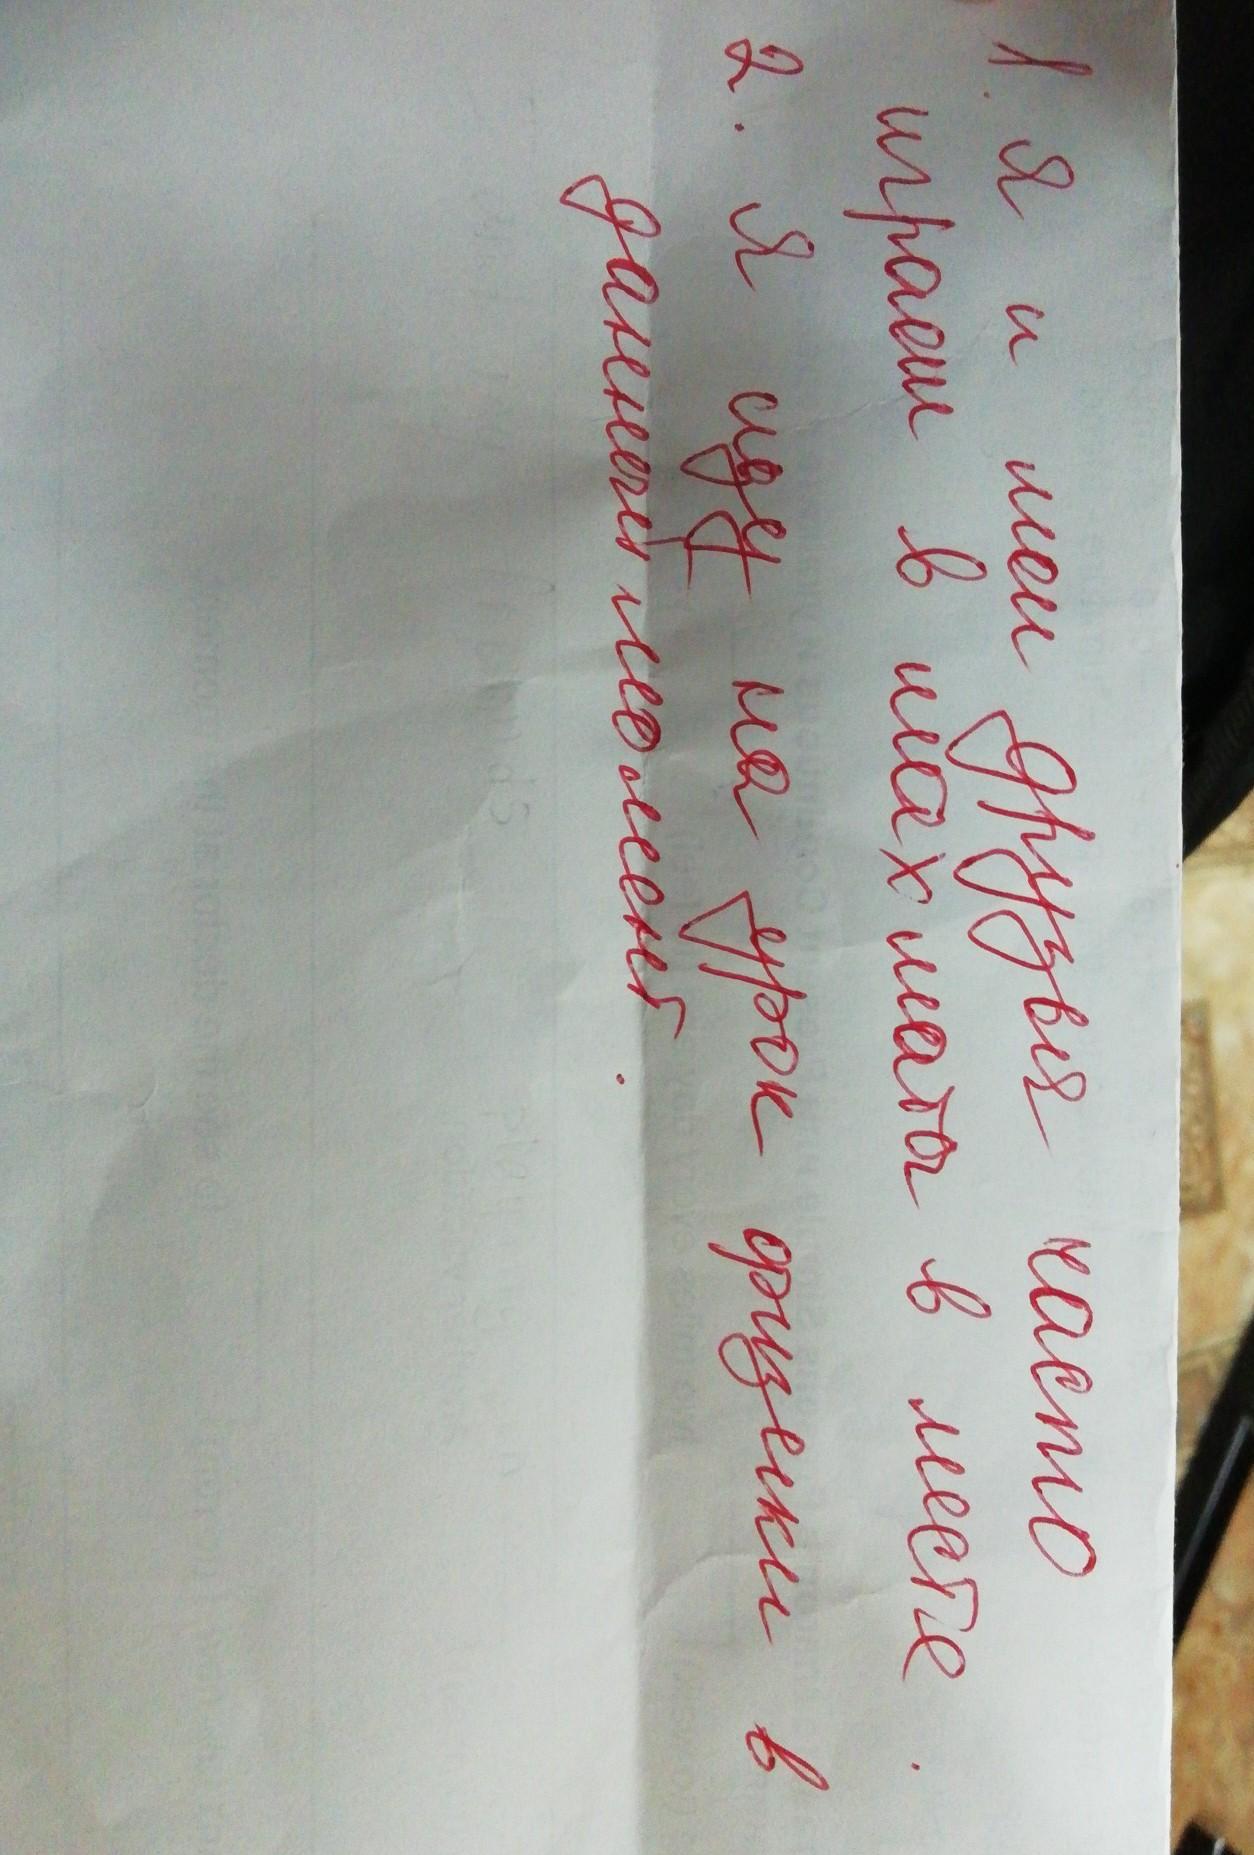 1. Я и мои друзья часто
играем в шахматы в месте.
2. Я иду на урок физеки в
данный момент.